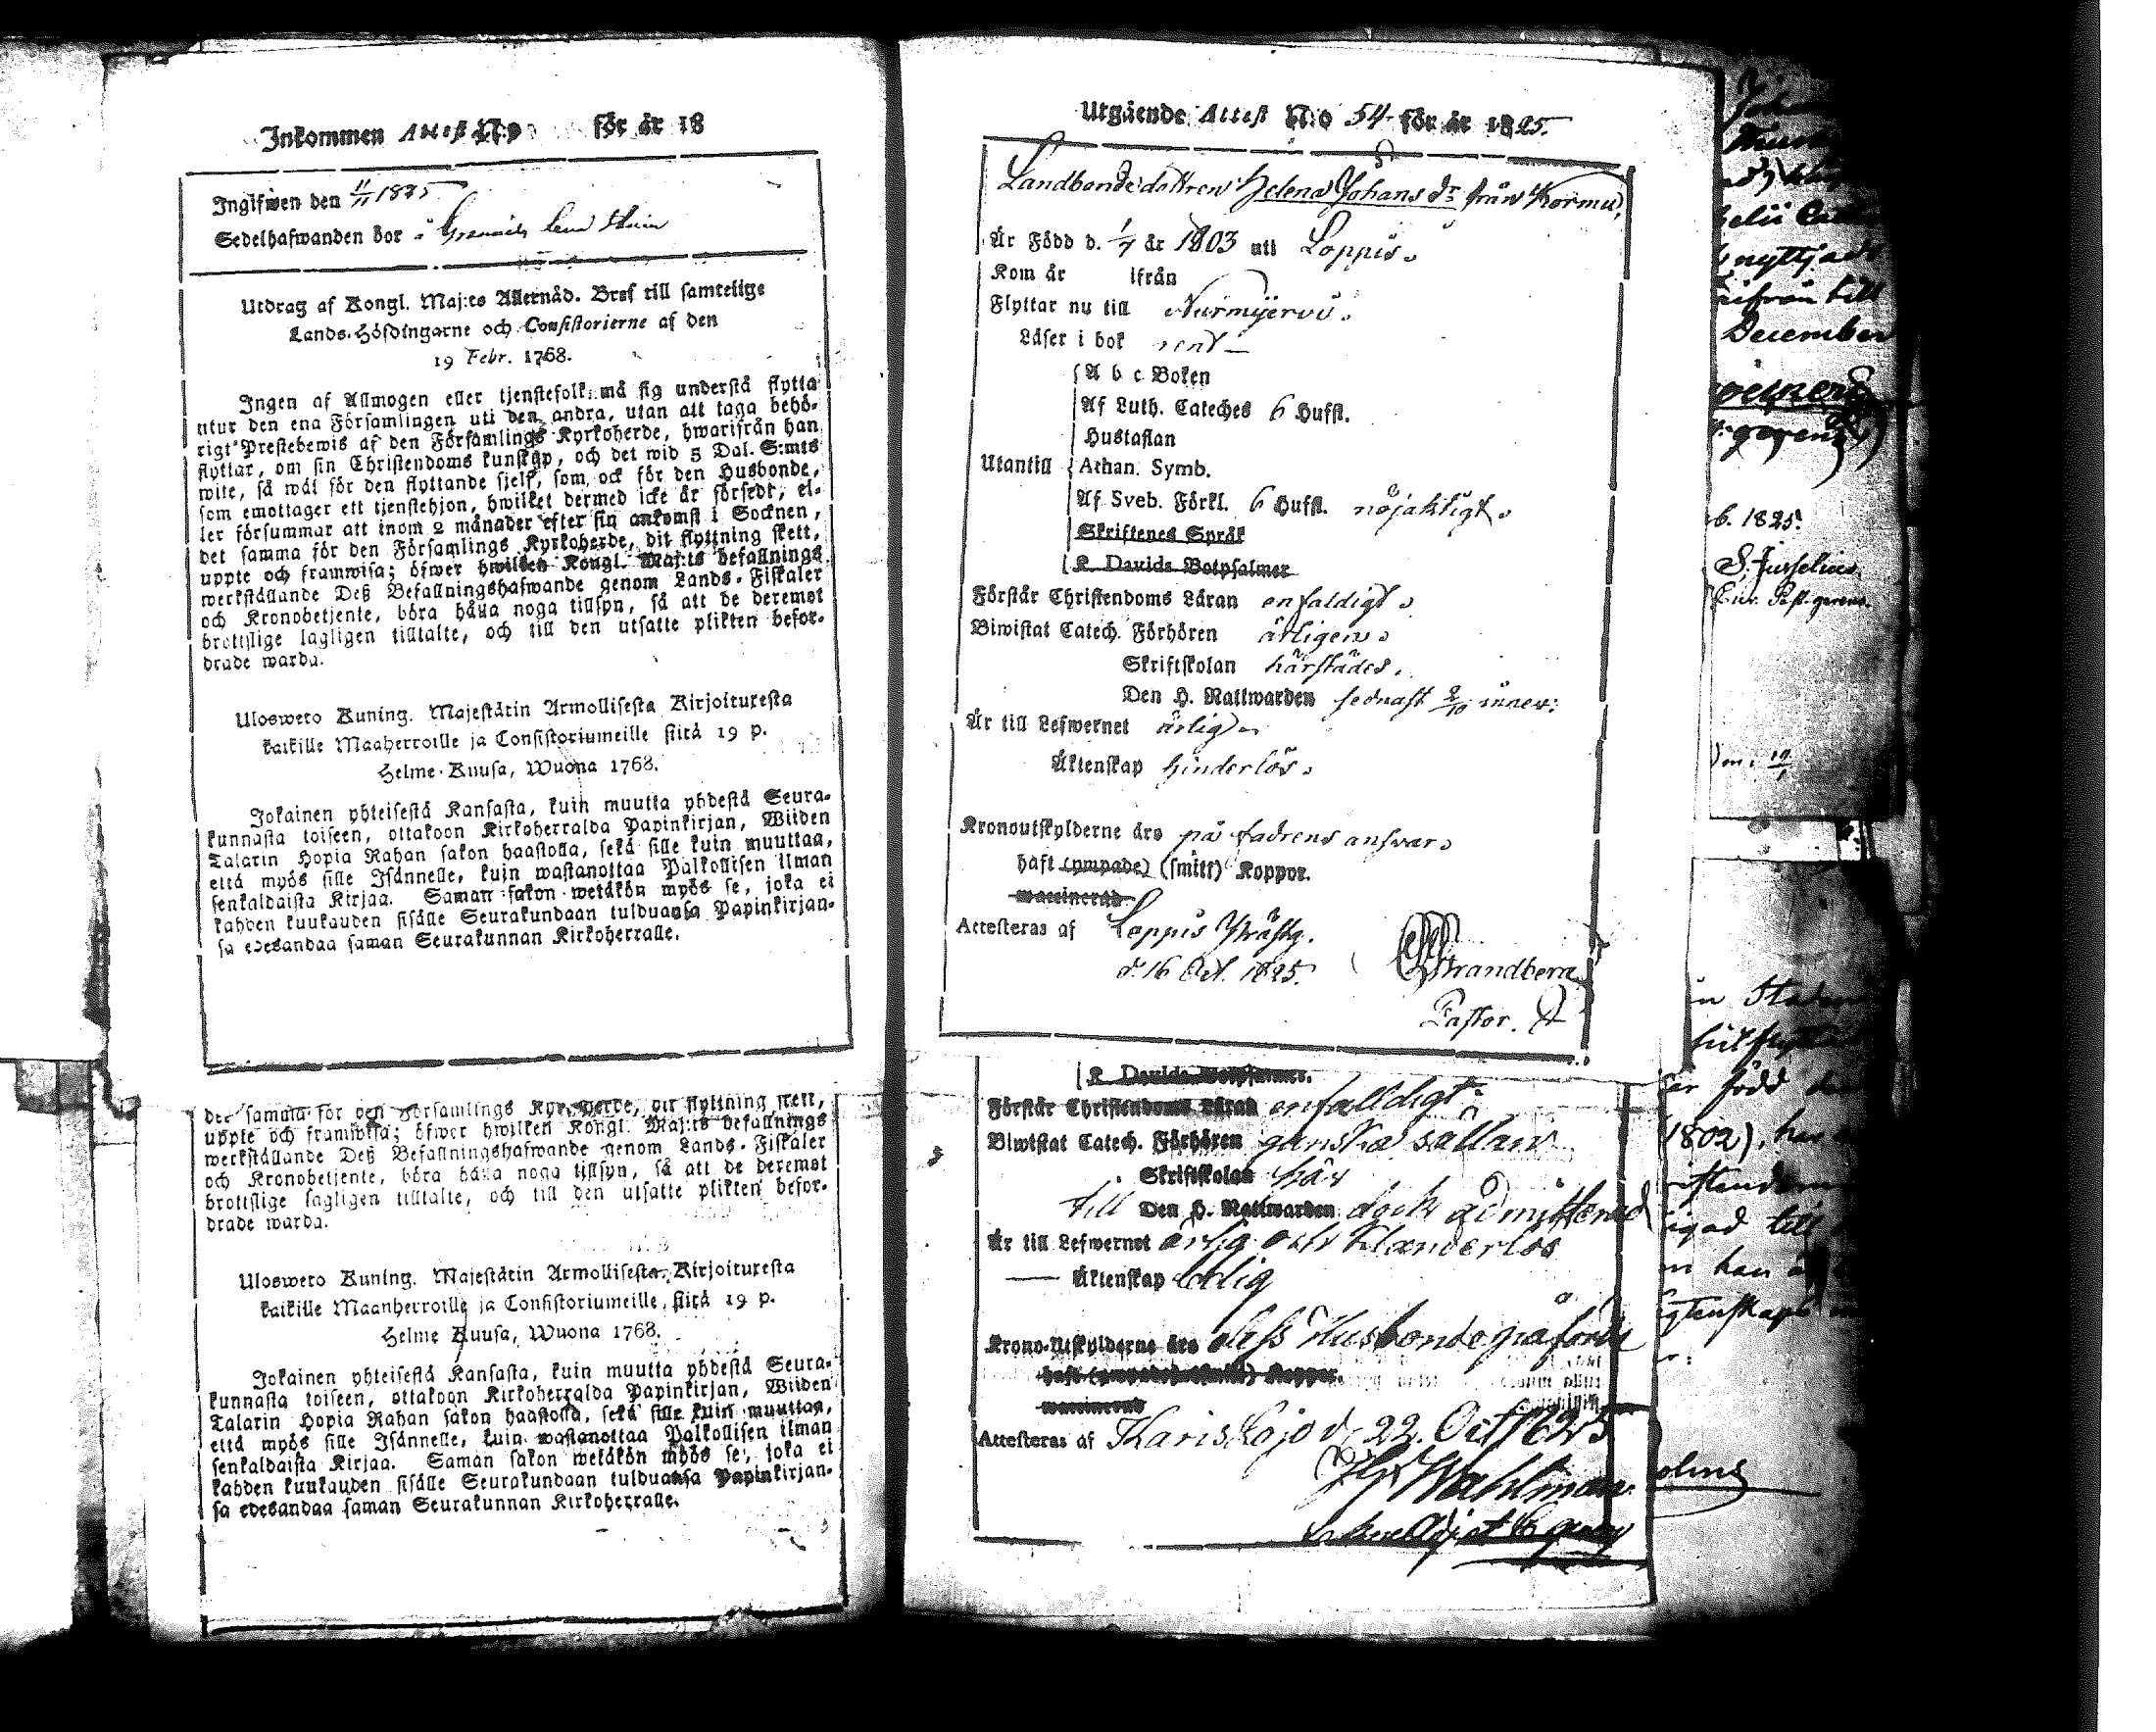 Inkommen Attest N:o för år 18
Ingifwen den 11/11 1825
Sedelhafwanden bor i
Utdrag af Kongl. Maj:ts Allernåd. Bref till samtelige
Lands-Höfdingarne och Consistorierne af den
19 Febr. 1768.
Ingen af Allmogen eller tjenstefolk må sig understå flytta
utur den ena Församlingen uti den andra, utan att taga behö-
rigt Prestebewis af den Församlings Kyrkoherde, hwarifrån han
flyttar, om sin Christendoms kunskap, och det wid 5 Dal. S:mts
wite, så wäl för den flyttande sjelf, som ock för den Husbonde,
som emottager ett tjenstehjon, hwilket dermed icke är försedt, el-
ler försummar att inom 2 månader efter sin ankomst i Socknen,
det samma för den Församlings Kyrkoherde, dit flyttning skett,
uppte och framwisa; öfwer hwilken Kongl. Maj:ts befallnings
werkställande Deß Befallningshafwande genom Lands-Fiskaler
och Kronobetjente, böra hålla noga tillsyn, så att de deremot
brottslige lagligen tilltalte, och till den utsatte plikten befor-
drade warda.
Ulosweto Kuning. Majestätin Armollisesta Kirjoituresta
kaikille Maaherroille ja Consistoriumeille siitä 19 p.
Helme-Kuusa, Wuona 1768.
Jokainen yhteisestä Kansasta, kuin muutta yhdestä Seura-
kunnasta toiseen, ottakoon Kirkoherralda Papinkirjan, Wiiden
Talarin Hopia Rahan sakon haastolla, sekä sille kuin muuttaa,
että myös sille Isännelle, kuin wastanottaa Palkollisen ilman
senkaldaista Kirjaa. Saman sakon wetäkön myös se, joka ei
kahden kuukauden sisälle Seurakundaan tulduansa Papinkirjan-
sa edesandaa saman Seurakunnan Kirkoherralle.
det samma för den Församlings Kyrkoherde, dit flyttning skett,
uppte och framwisa; öfwer hwilken Kongl. Maj:ts befallnings
werkställande Deß Befallningshafwande genom Lands-Fiskaler
och Kronobetjente, böra hålla noga tillsyn, så att de deremot
brottslige lagligen tilltalte, och till den utsatte plikten befor-
drade warda.
Ulosweto Kuning. Majestätin Armollisesta Kirjoituresta
kaikille Maanherroille ja Consistoriumeille, siitä 19 p.
Helme Kuusa, Wuona 1768.
Jokainen yhteisestä Kansasta, kuin muutta yhdestä Seura-
kunnasta toiseen, ottakoon Kirkoherralda Papinkirjan, Wiiden
Talarin Hopia Rahan sakon haastolla, sekä sille kuin muuttaa,
että myös sille Isännelle, kuin wastanottaa Palkollisen ilman
senkaldaista Kirjaa. Saman sakon wetäkön myös se, joka ei
kahden kuukauden sisälle Seurakundaan tulduansa Papinkirjan-
sa edesandaa saman Seurakunnan Kirkoherralle.
Utgående Attest N:o 54 för år 1825.
Landbondedottren Helena Johans dr från Kormu,
Är Född d. 1/7 år 1803 uti Loppis.
Kom år ifrån
Flyttar nu till Nurmijervi.
Läser i bok rent
A b c Boken
Af Luth. Cateches 6 Hufst.
Hustaflan
Utantill Athan. Symb.
Af Sveb. Förkl. 6 Hufst. nöjaktigt.
Skriftenes Språk
K. Davids Botpsalmer
Förstår Christendoms Läran enfaldigt.
Biwistat Catech. Förhören årligen.
Skriftskolan härstädes.
Den H. Nattwarden sednast 2/10 innev:
Är till Lefwernet ärlig.
Äktenskap hinderlös.
Kronoutskylderne äro på fadrens answar.
haft (ympade) (smitt) Koppor.
waccinerad
Attesteras af Loppis Prästg.
d. 16 Oct. 1825. Strandberg
Pastor.
K. Davids Botpsalmer.
Förstår Christendoms Läran enfalldigt.
Biwistat Catech. Förhören ganska sällan
Skriftskolan här
till Den H. Nattwarden dock admitterad
Är till Lefwernet ärlig och klanderlös
Äktenskap ledig
Krono-Utskylderne äro dess Husbonde påförde
haft (ympade) (smitt) Koppor.
waccinerad
Attesteras af Karislojo d. 22. Oct 1825
Wahlman
nyttjade
ifrån till
December
b. 1825.
Past. gerens.
19/1
född den
(1802), har
till
han